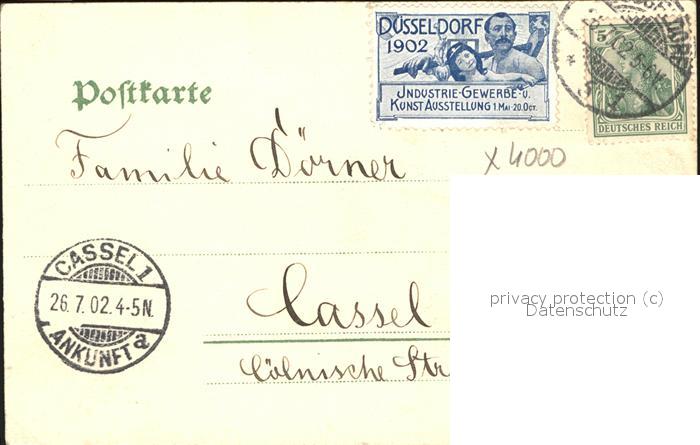 DÜSSELDORF
1902
JNDUSTRIE-GEWERBE-U.
KUNST AUSSTELLUNG 1.MAI-20.OCT.
5
DEUTSCHES REICH
Postkarte
Familie Dörner
x 4000
CASSEL 1
26.7.02.4-5N.
ANKUNFT a
Cassel
Cölnische Str
privacy protection (c)
Datenschutz